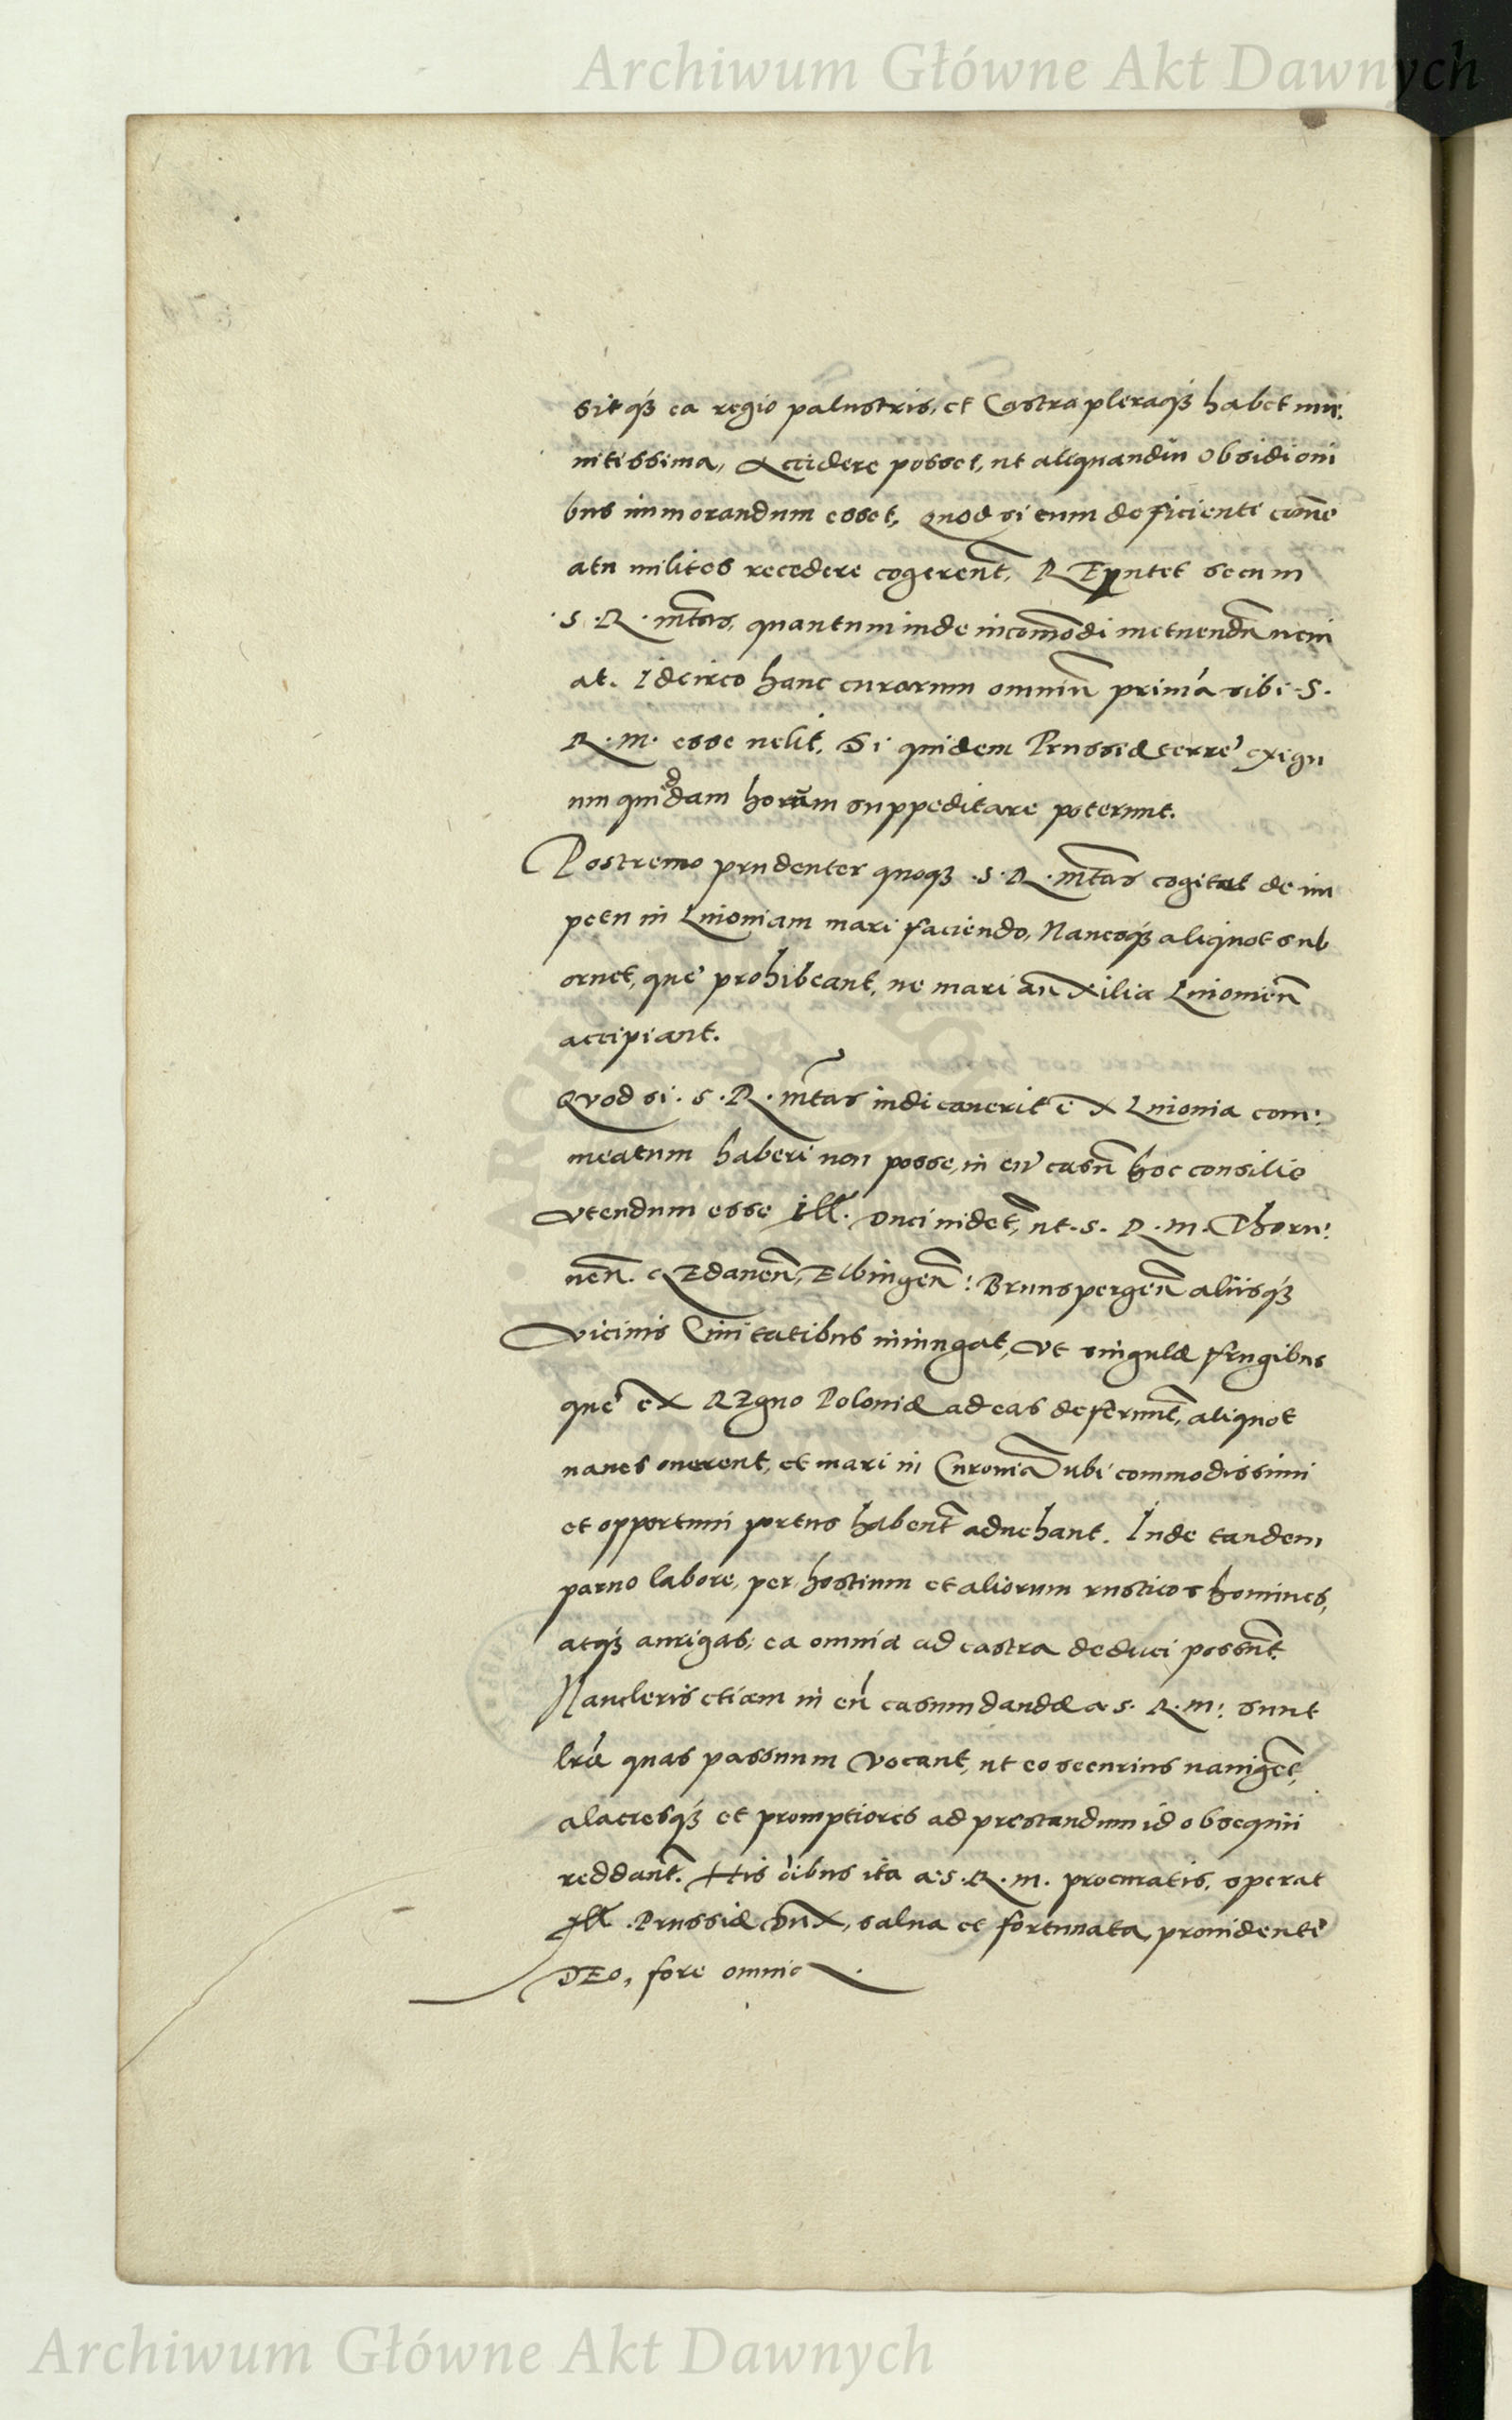 Archiwum Główne Akt Dawnych
Sitq3 ea regio palustris, et Castra pleraq3 habet mu:
nitissima, Accidere posset, ut aliquandiu obsidioni
bus immorandum esset, Quod si cum deficiente com̄e
atu milites recedere cogerent̄, REputet secum
S. R. mt̄as, quantum inde incom̄odi metuendū veni
at. Idcirco hanc curarum omniū primā sibi S.
R. M. esse uelit, Si quidem Prussiæ terrę exigu
um quiddam horum suppeditare poterunt.
Postremo prudenter quoq3 S. R. mt̄as cogitat de im
petu in Liuoniam mari faciendo, Naueq3 aliquot sub
ornet, quę prohibeant, ne mari auxilia Liuonien̄
accipiant.
Quod si S. R. mt̄as indicauerit ex Liuonia com:
meatum haberi non posse, in eū casū hoc consilio
vtendum esse Ill. Duci videt̄, ut S. R. M. Thoru:
nen̄. GEdanen̄, Elbingen̄: Brunspergen̄ aliisq3
vicinis Ciuitatibus iniungat, vt singulæ frugibus
quę ex REgno Poloniæ ad eas deferunt̄, aliquot
naues onerent, et mari in Curoniā ubi commodissimi
et opportuni portus habent̄ aduehant. Inde tandem
paruo labore, per hostium et aliorum rusticos homines,
atq3 aurigas, ea omnia ad castra deduci possunt̄.
Naucleris etiam in eū casum dandæ a S. R. M: sunt
lr̄æ quas passuum vocant, ut eo securius nauigēt,
alacresq3 et promptiores ad prestandum id obsequii
reddant̄. His ōibus ita a S. R. M. procuratis, sperat
Ill. Prussiæ Dux, salua et fortunata, prouidente
DEo, fore omnia.
Archiwum Główne Akt Dawnych